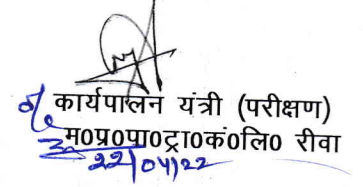 कार्यपालन यंत्री (परीक्षण)
म०प्र०पा०ट्रा०कं०लि० रीवा
22/04/22